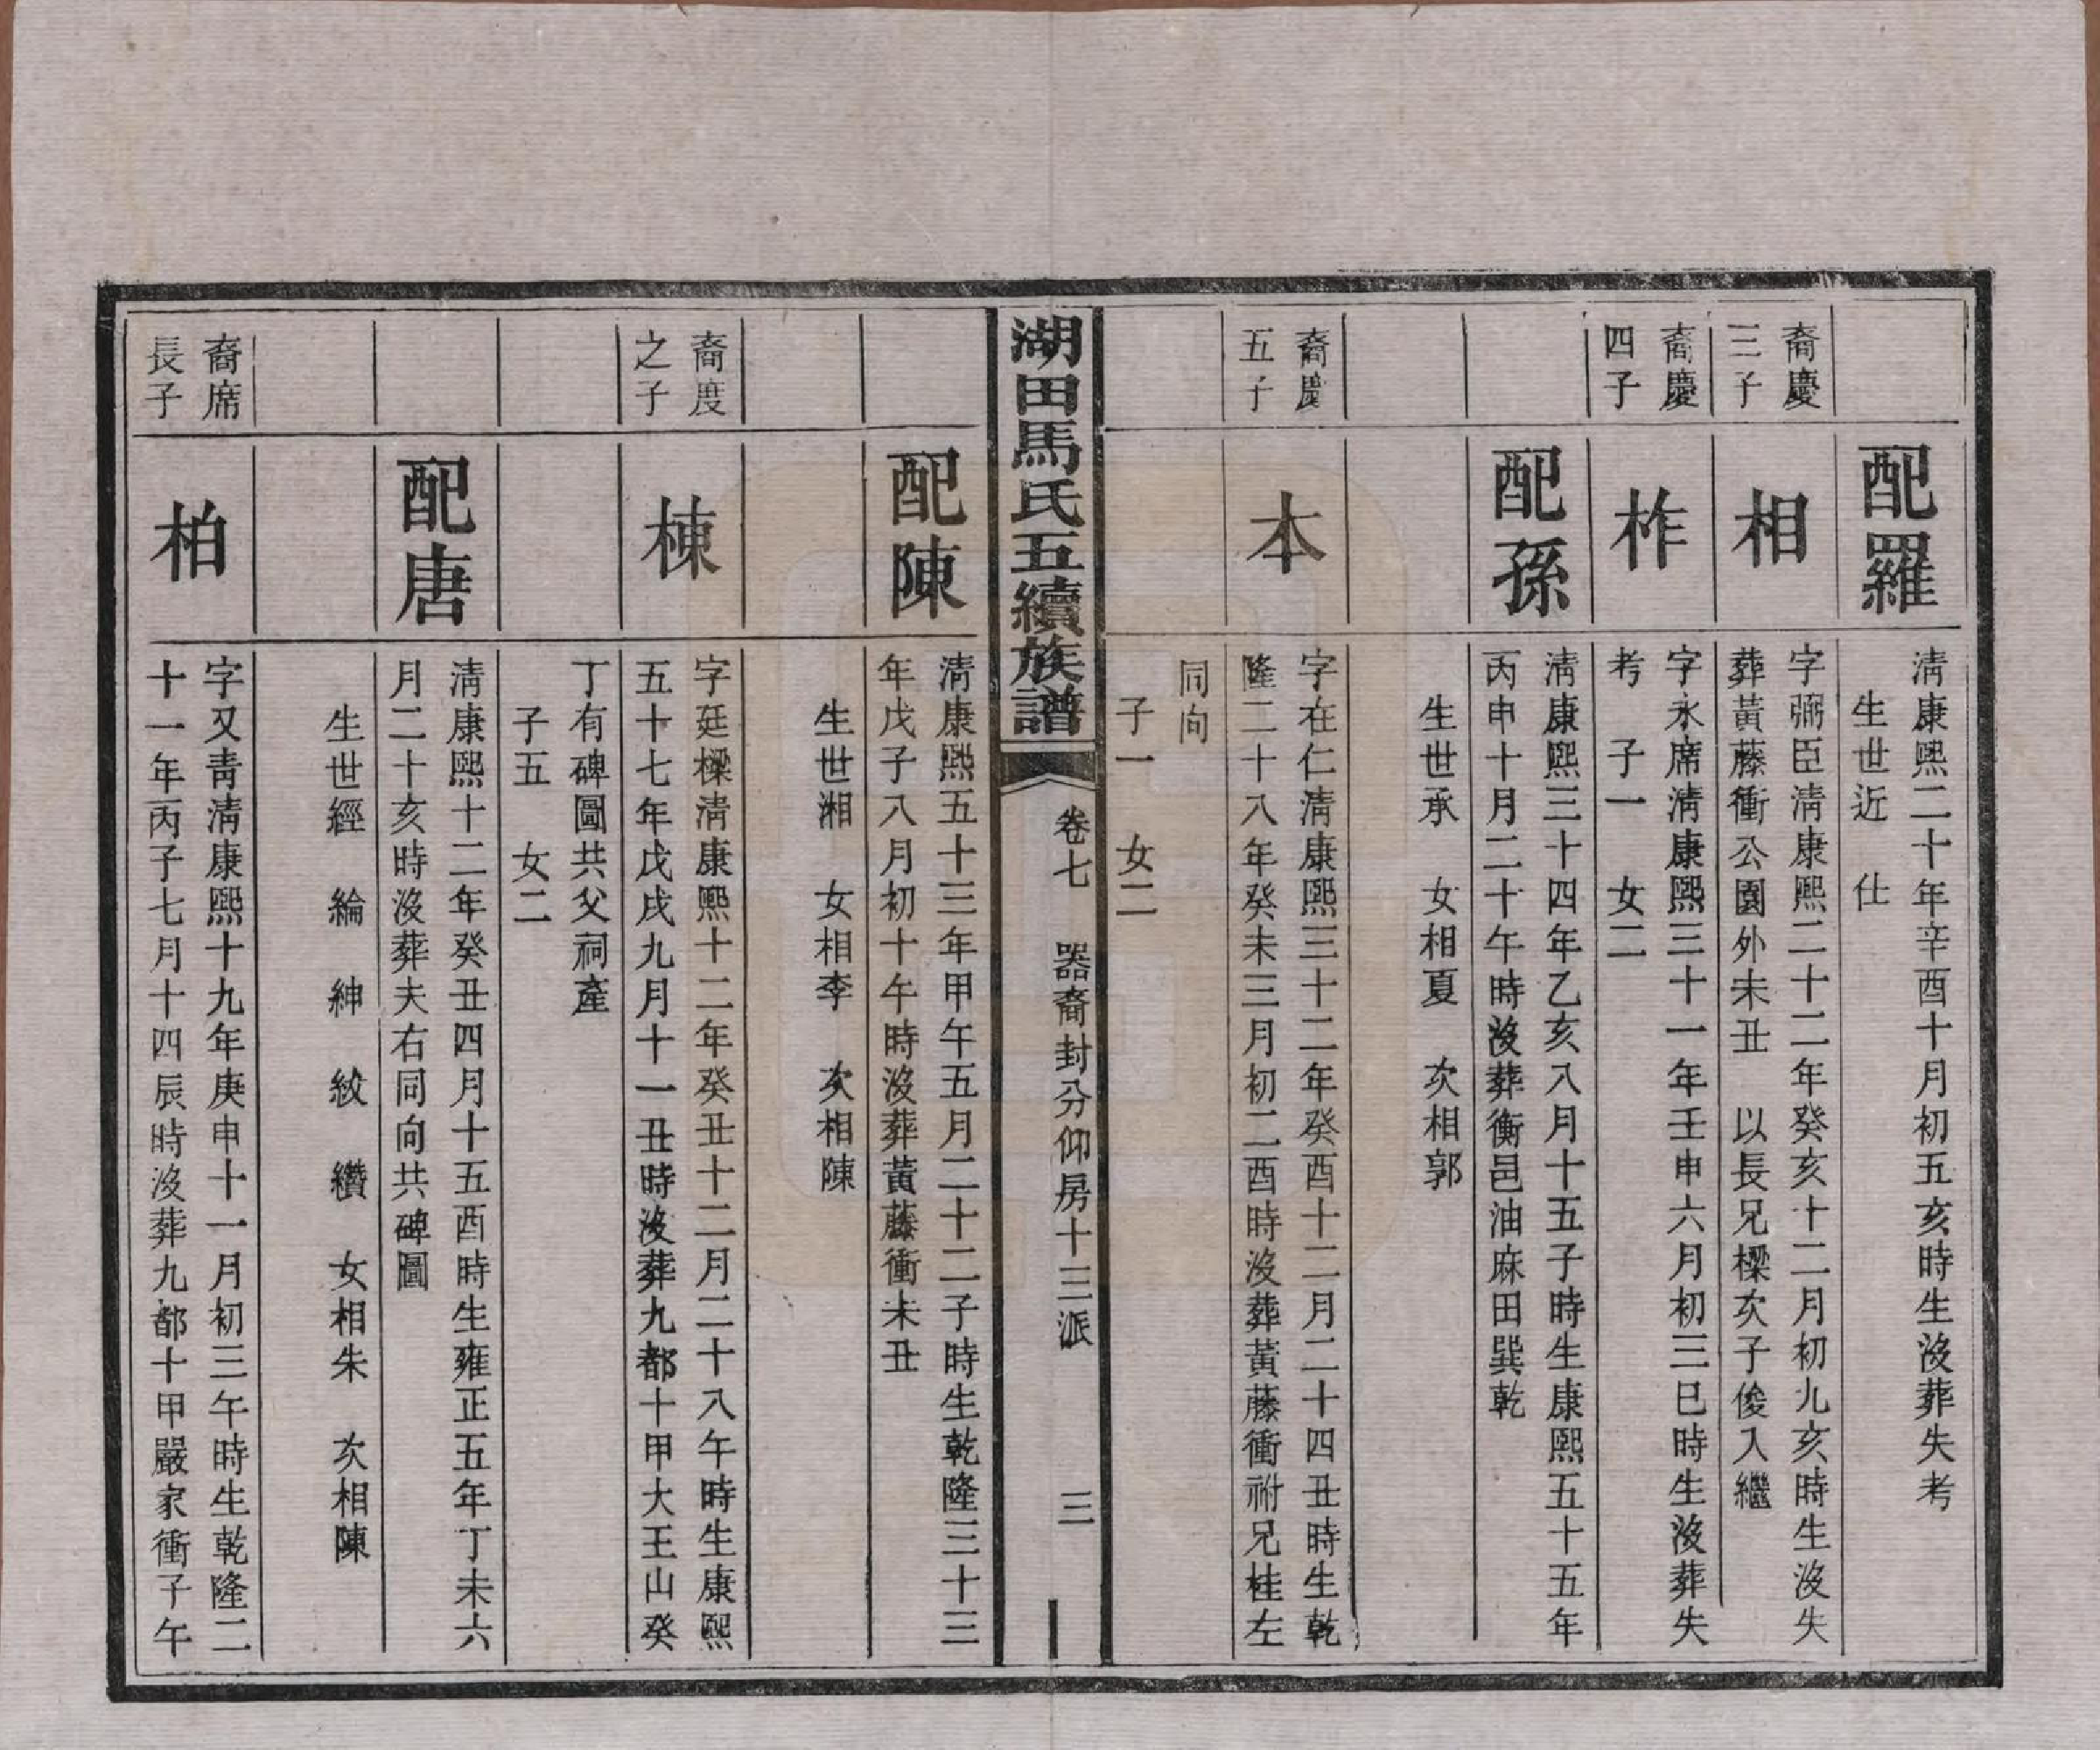 配羅
清康熙二十年辛酉十月初五亥時生沒葬失考
生世近　仕
裔慶
三子
相
字弼臣清康熙二十二年癸亥十二月初九亥時生沒失
葬黃藤衝公園外未丑　以長兄樑次子俊入繼
裔慶
四子
柞
字永席清康熙三十一年壬申六月初三巳時生沒葬失
考　子一　女二
配孫
清康熙三十四年乙亥八月十五子時生康熙五十五年
丙申十月二十午時沒葬衡邑油麻田巽乾
生世承　女相夏　次相郭
裔慶
五子
本
字在仁清康熙三十二年癸酉十二月二十四丑時生乾
隆二十八年癸未三月初二酉時沒葬黃藤衝祔兄桂左
同向
子一　女二
湖田馬氏五續族譜
卷七　器裔封分仰房十三派　三
配陳
清康熙五十三年甲午五月二十二子時生乾隆三十三
年戊子八月初十午時沒葬黃藤衝未丑
生世湘　女相李　次相陳
裔度
之子
棟
字廷樑清康熙十二年癸丑十二月二十八午時生康熙
五十七年戊戌九月十一丑時沒葬九都十甲大王山癸
丁有碑圖共父祠產
子五　女二
配唐
清康熙十二年癸丑四月十五酉時生雍正五年丁未六
月二十亥時沒葬夫右同向共碑圖
生世經　綸　紳　紋　纘　女相朱　次相陳
裔席
長子
柏
字又青清康熙十九年庚申十一月初三午時生乾隆二
十一年丙子七月十四辰時沒葬九都十甲嚴家衝子午